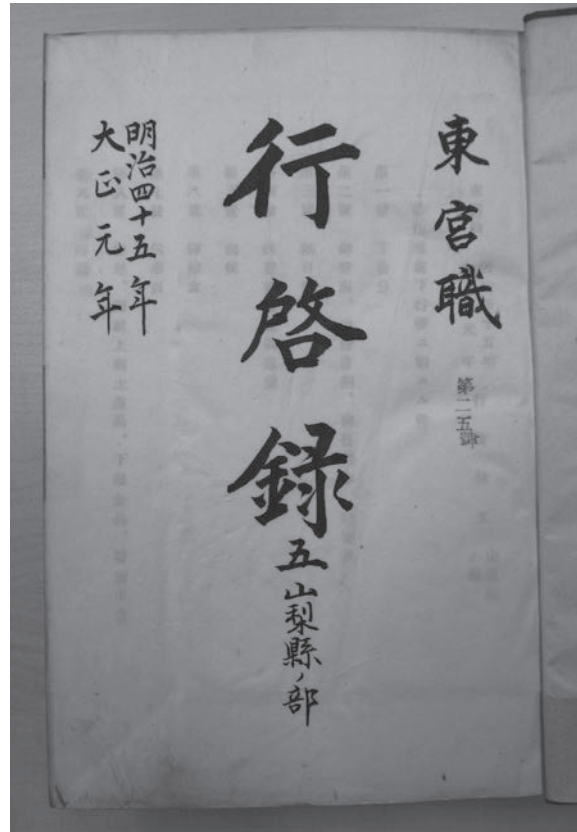 東宮職
第二五號
行啓録 五 山梨縣ノ部
明治四十五年
大正元年